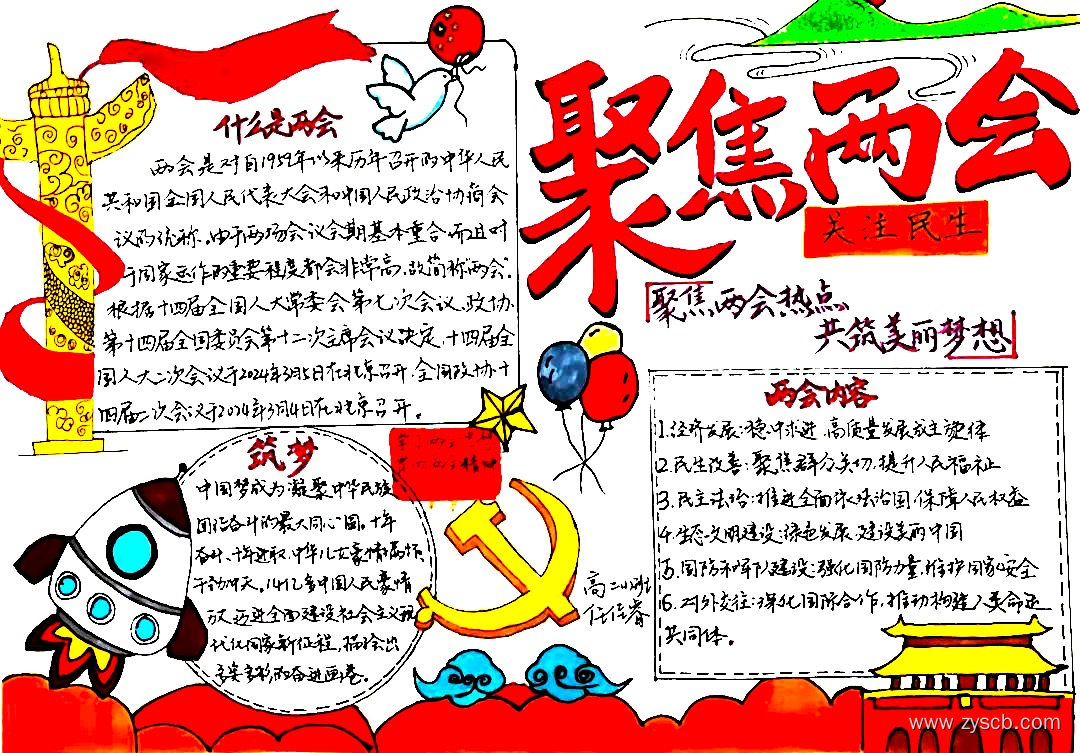 聚焦两会
关注民生
聚焦两会热点
共筑美丽梦想
什么是两会
两会是对自1959年以来历年召开的中华人民
共和国全国人民代表大会和中国人民政治协商会
议的统称。由于两场会议会期基本重合,而且对
于国家运作的重要程度都会非常高,故简称“两会”。
根据十四届全国人大常委会第七次会议、政协
第十四届全国委员会第十二次主席会议决定,十四届全
国人大二次会议于2024年3月5日在北京召开,全国政协十
四届二次会议于2024年3月4日在北京召开。
筑梦
中国梦成为凝聚中华民族
团结奋斗的最大同心圆。十年
奋斗、十年进取,中华儿女豪情高
干劲冲天。14亿多中国人民豪情
万丈迈进全面建设社会主义现
代化国家新征程,描绘出
多姿多彩的奋进画卷。
两会内容
1.经济发展:稳中求进,高质量发展成主旋律
2.民生改善:聚焦群众关切,提升人民福祉
3.民主法治:推进全面依法治国,保障人民权益
4.生态文明建设:绿色发展,建设美丽中国
5.国防和军队建设:强化国防力量,维护国家安全
6.对外交往:深化国际合作,推动构建人类命运
共同体。
高二
www.zyscb.com